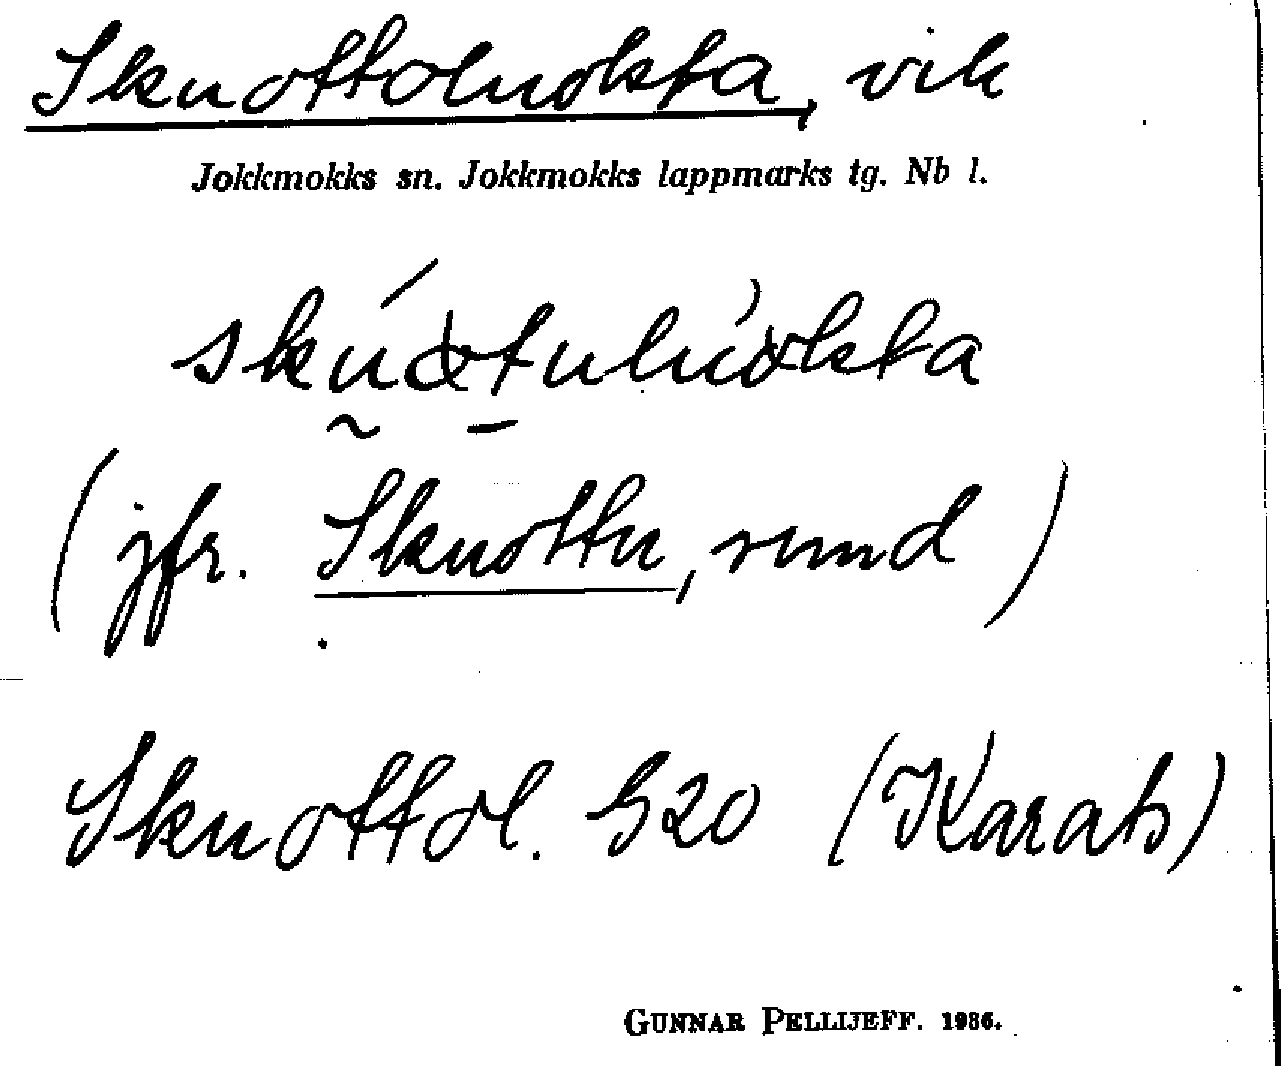 Skuottoluokta, vik
Jokkmokks sn. Jokkmokks lappmarks tg. Nb l.
(jfr. Skuottu, sund)
Skuottol. G20 (Karats)
GUNNAR PELLIJEFF. 1986.